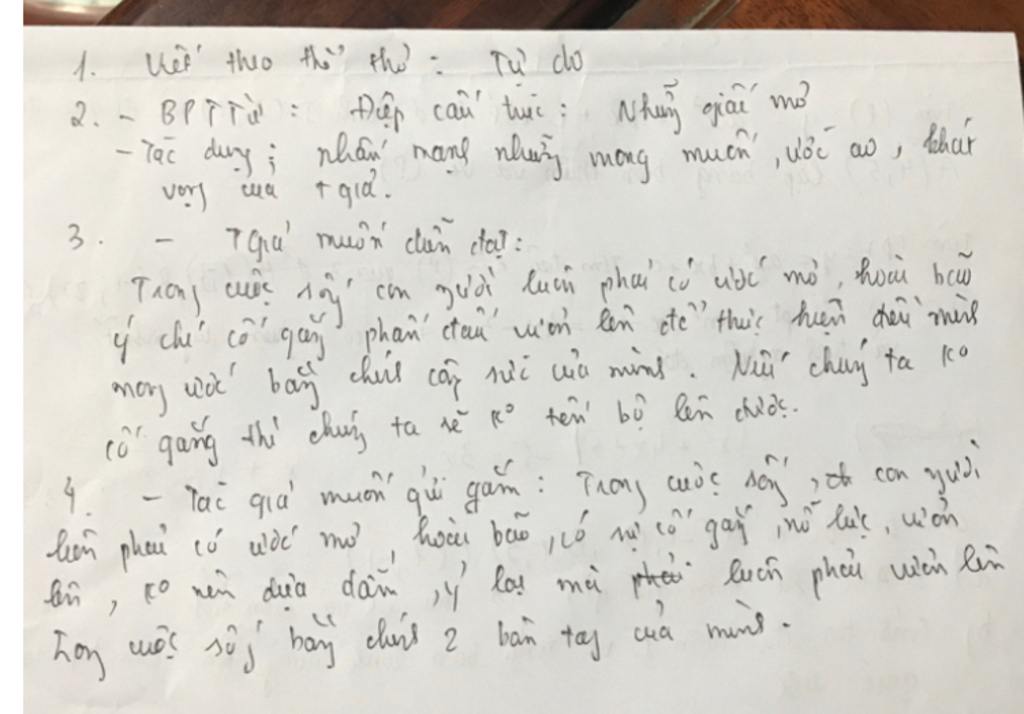 1. Viết theo thể thơ : Tự do
2. - BPTTừ : Điệp cấu trúc : Những giấc mơ
- Tác dụng ; nhấn mạnh những mong muốn, ước ao, khát
vọng của t giả.
3. - TGiả muốn diễn đạt :
Trong cuộc sống con người luôn phải có ước mơ, hoài bão
ý chí cố gắng phấn đấu vươn lên để thực hiện điều mình
mong ước bằng chính công sức của mình. Nếu chúng ta ko
cố gắng thì chúng ta sẽ ko tiến bộ lên được.
4. - Tác giả muốn gửi gắm : Trong cuộc sống, con người
luôn phải có ước mơ, hoài bão, có sự cố gắng, nỗ lực, vươn
lên, ko nên dựa dẫm, ỷ lại mà luôn phải vươn lên
trong cuộc sống bằng chính 2 bàn tay của mình.